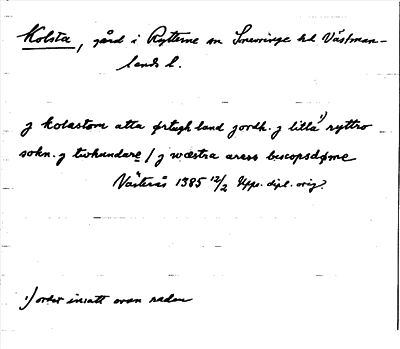 Kolsta, gård i Rytterne sn Snevringe hd Västman-
lands l.
j kolastom atta ørtugh land jordh. j litla¹) ryttro
sokn. j twhundare / j wæstra aross bescopsdøme
Västerås 1385 12/2 Upps. dipl. orig.
¹) ordet insatt ovan raden